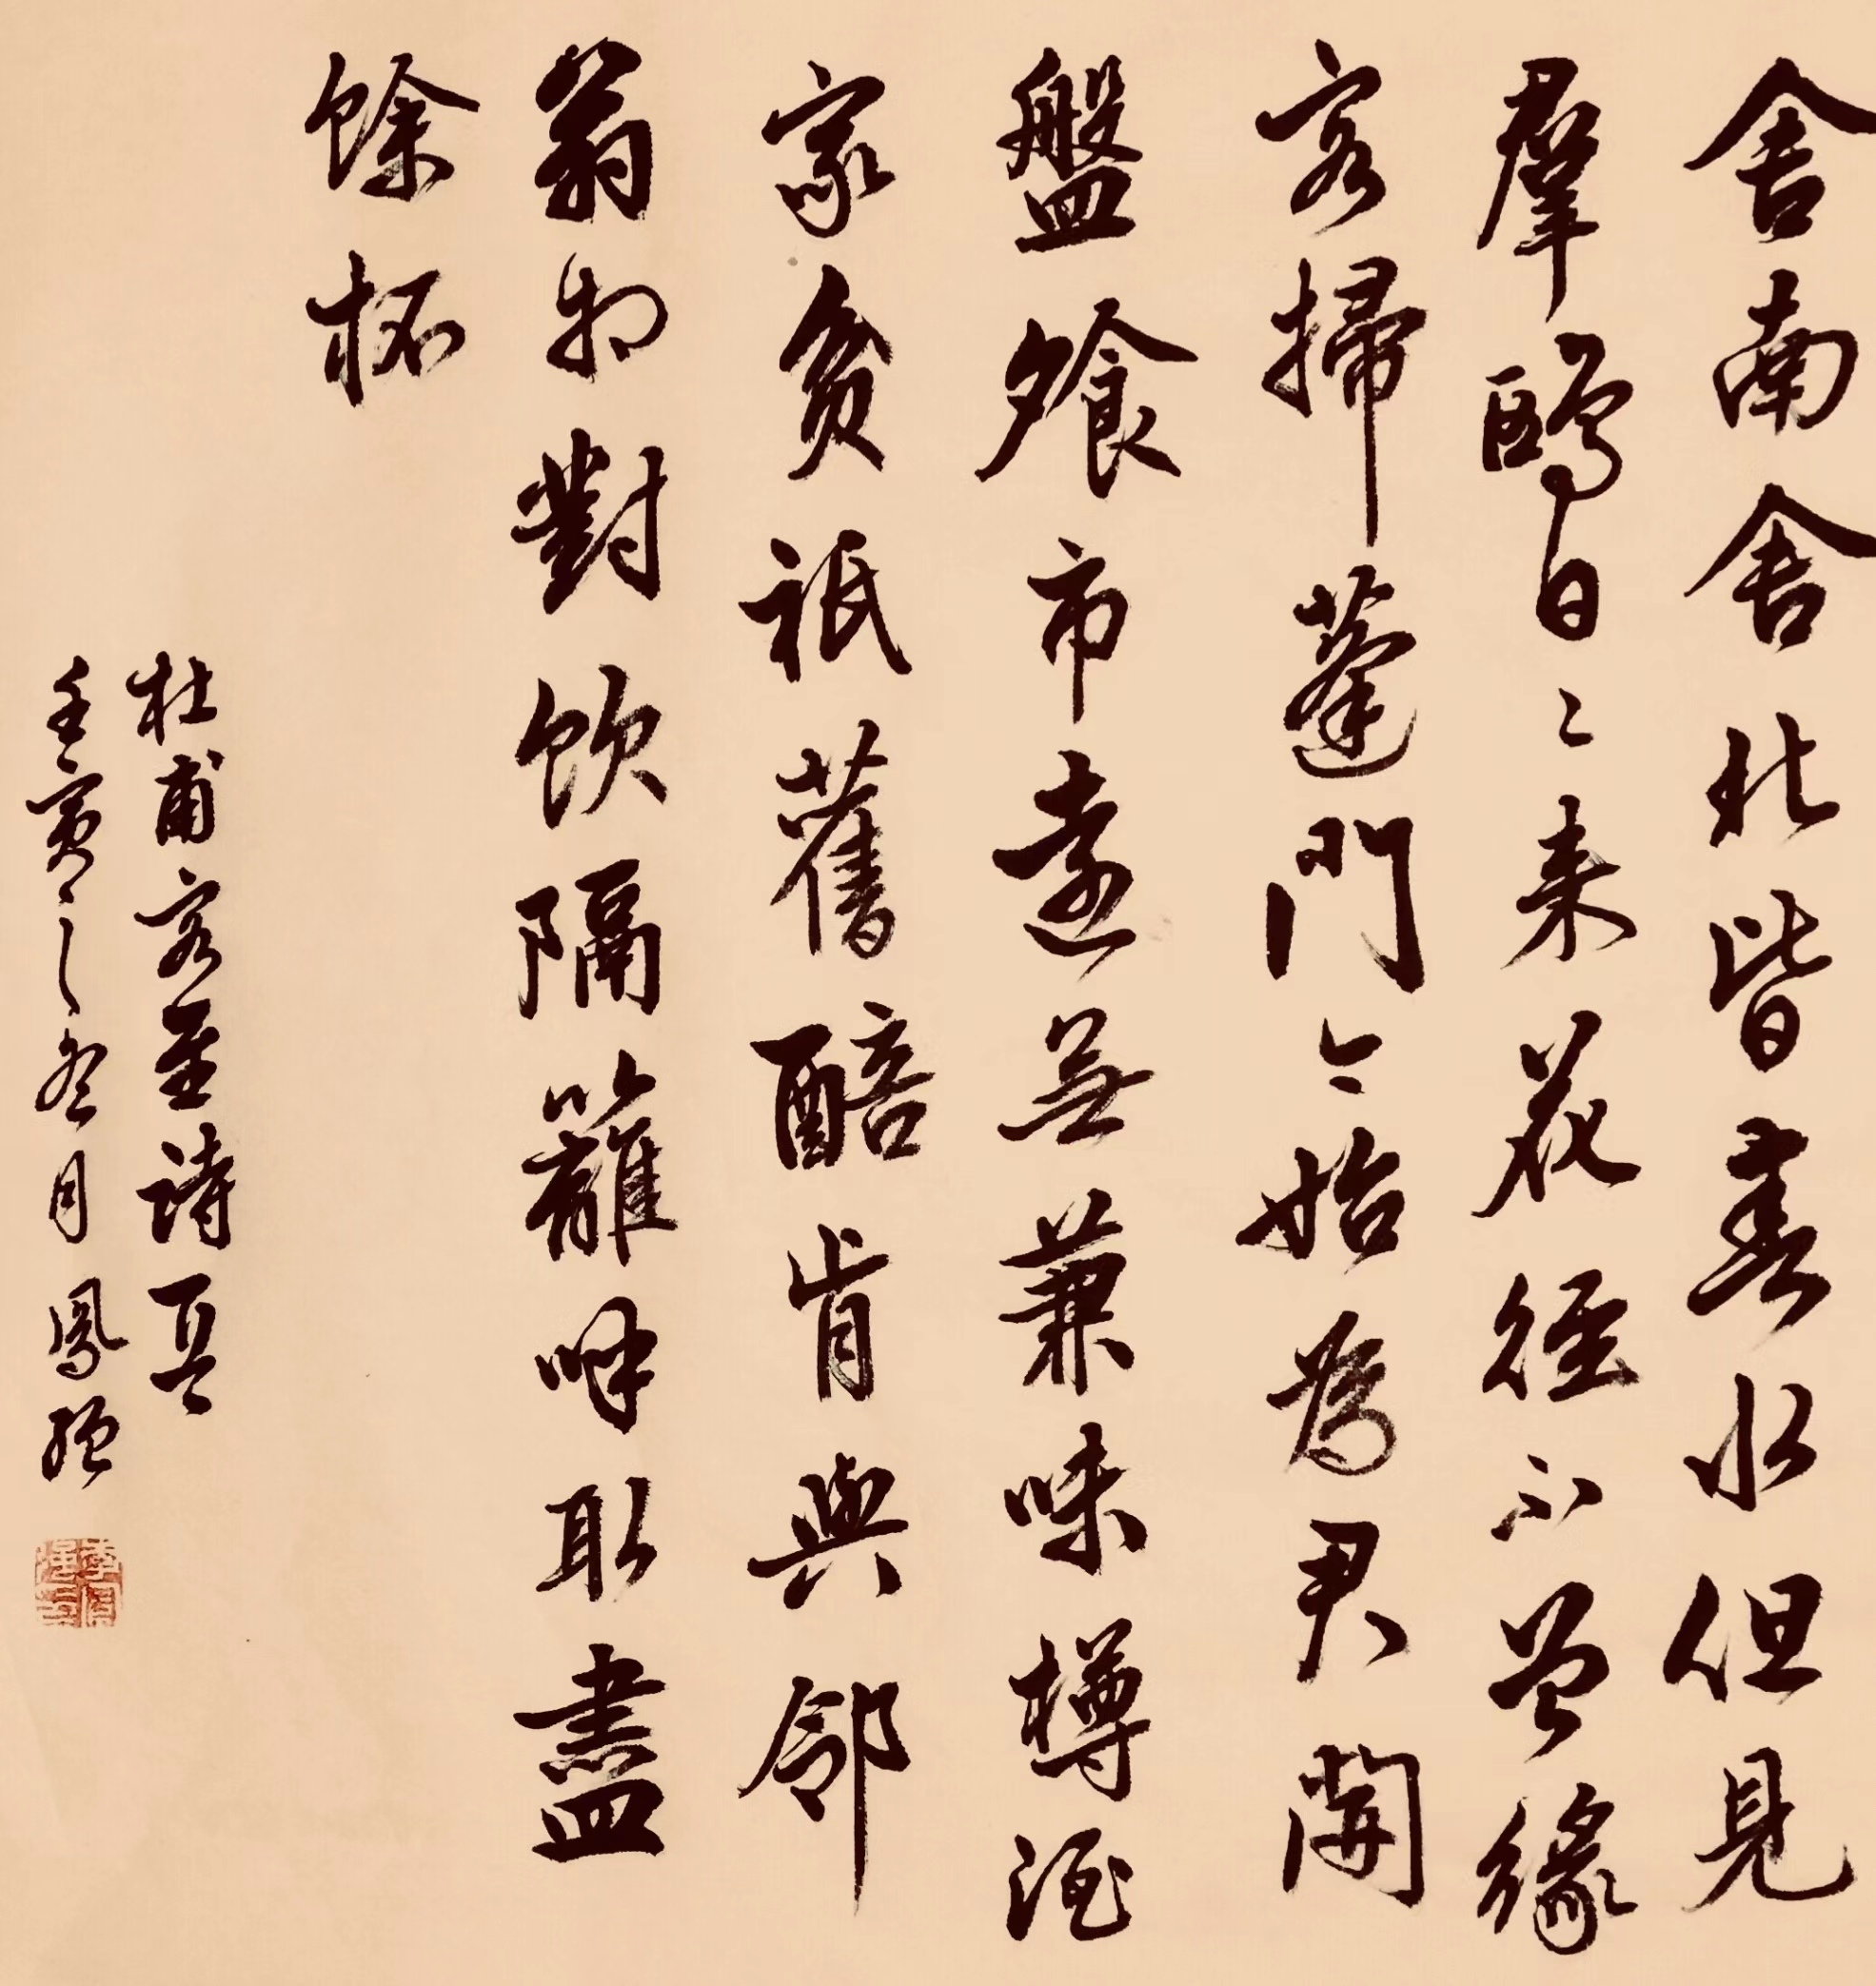 舍南舍北皆春水但見
群鷗日々来花径不曾緣
客掃蓬門今始為君開
盤飧市遠無兼味樽酒
家貧祇舊醅肯與鄰
翁相對飲隔籬呼取盡
餘杯
杜甫客至詩一首
壬寅之冬月鳳強